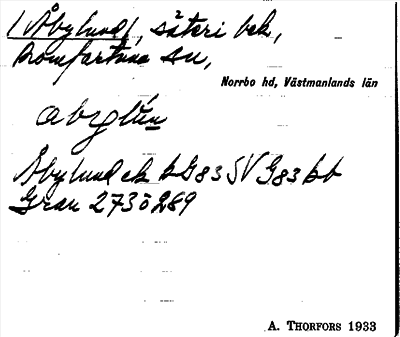 / Åbylund /, säteri bek,
Romfartuna sn,
Norrbo hd, Västmanlands län
Åbylund ek b G83 SV G83 bb
Gran 2730289
A. THORFORS 1933